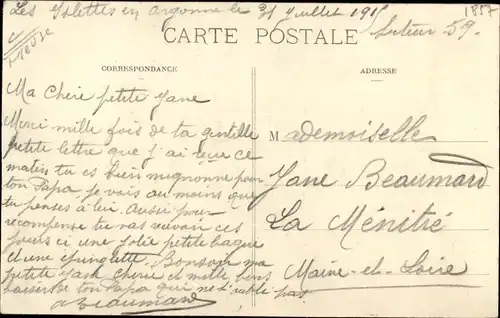 Les Islettes en argonne le 31 Juillet 1915
Secteur 59.
1857
Meuse
CARTE POSTALE
CORRESPONDANCE
ADRESSE
Ma Chère petite Jane
Merci mille fois de ta gentille
petite lettre que j'ai reçue ce
matin tu es bien mignonne pour
ton Papa je vois au moins que
tu penses à lui. Aussi pour
recompense tu vas recevoir ces
jours ci une Jolie petite bague
et une épinglette. Bonsoir ma
petite Jane Cherie et mille bons
baisers de ton Papa qui ne t'oublie pas
Beaumard
Mademoiselle
Jane Beaumard
La Ménitré
Maine-et-Loire